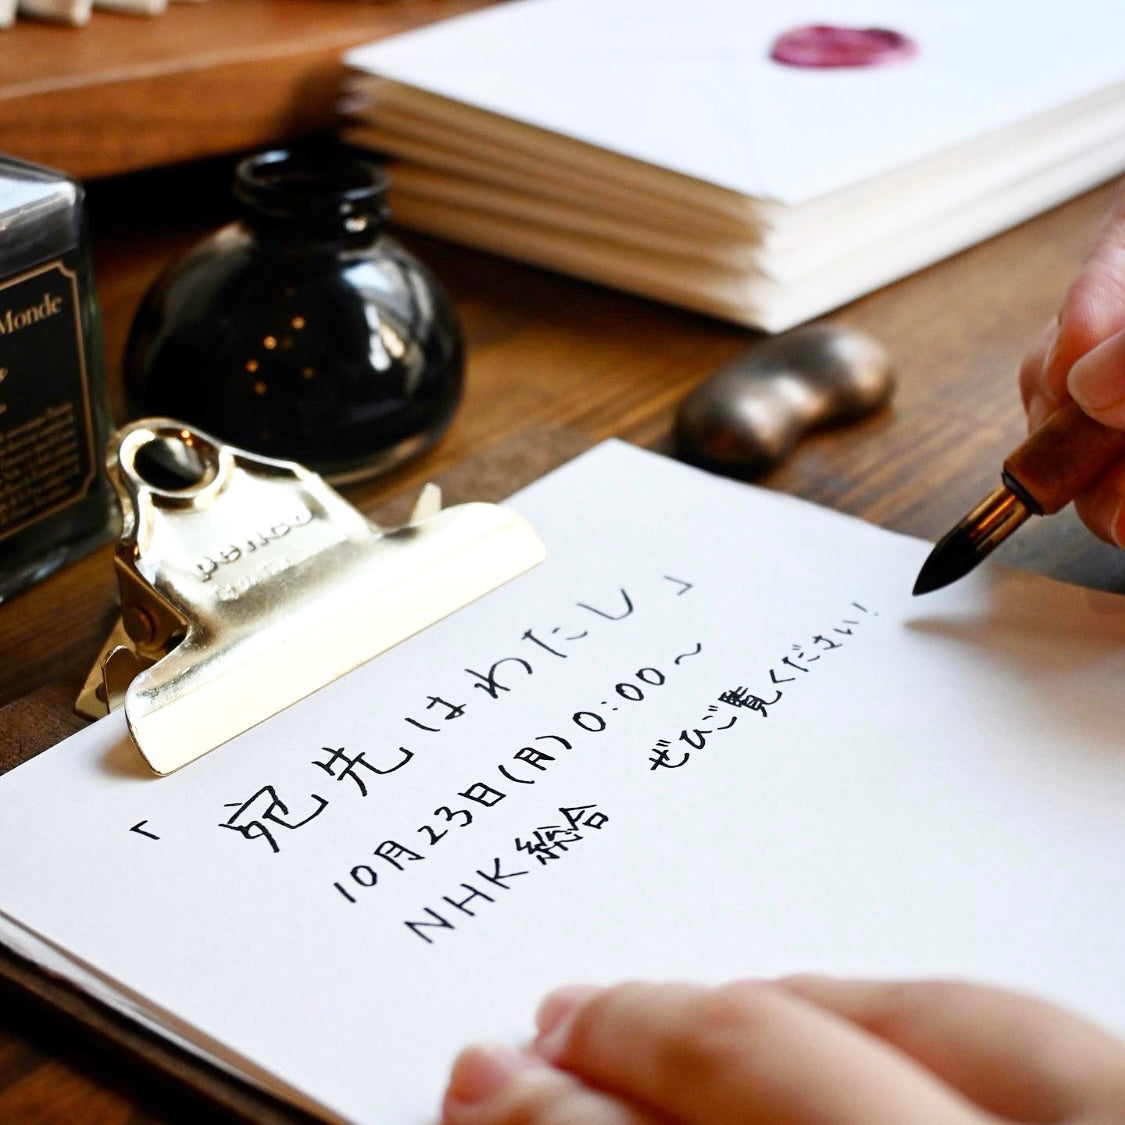 Monde
「宛先はわたし」
10月23日(月)0:00〜
NHK総合 ぜひご覧ください!